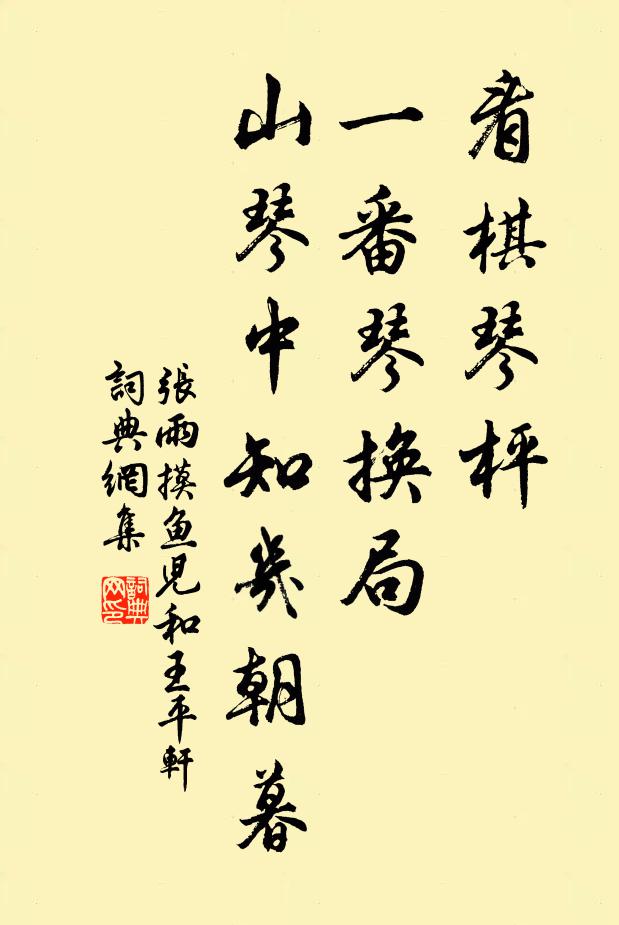 看棋琴枰
一番琴換局
山琴中知幾朝暮
張雨摸魚兒和王平軒
詞典網集
詞典
网印